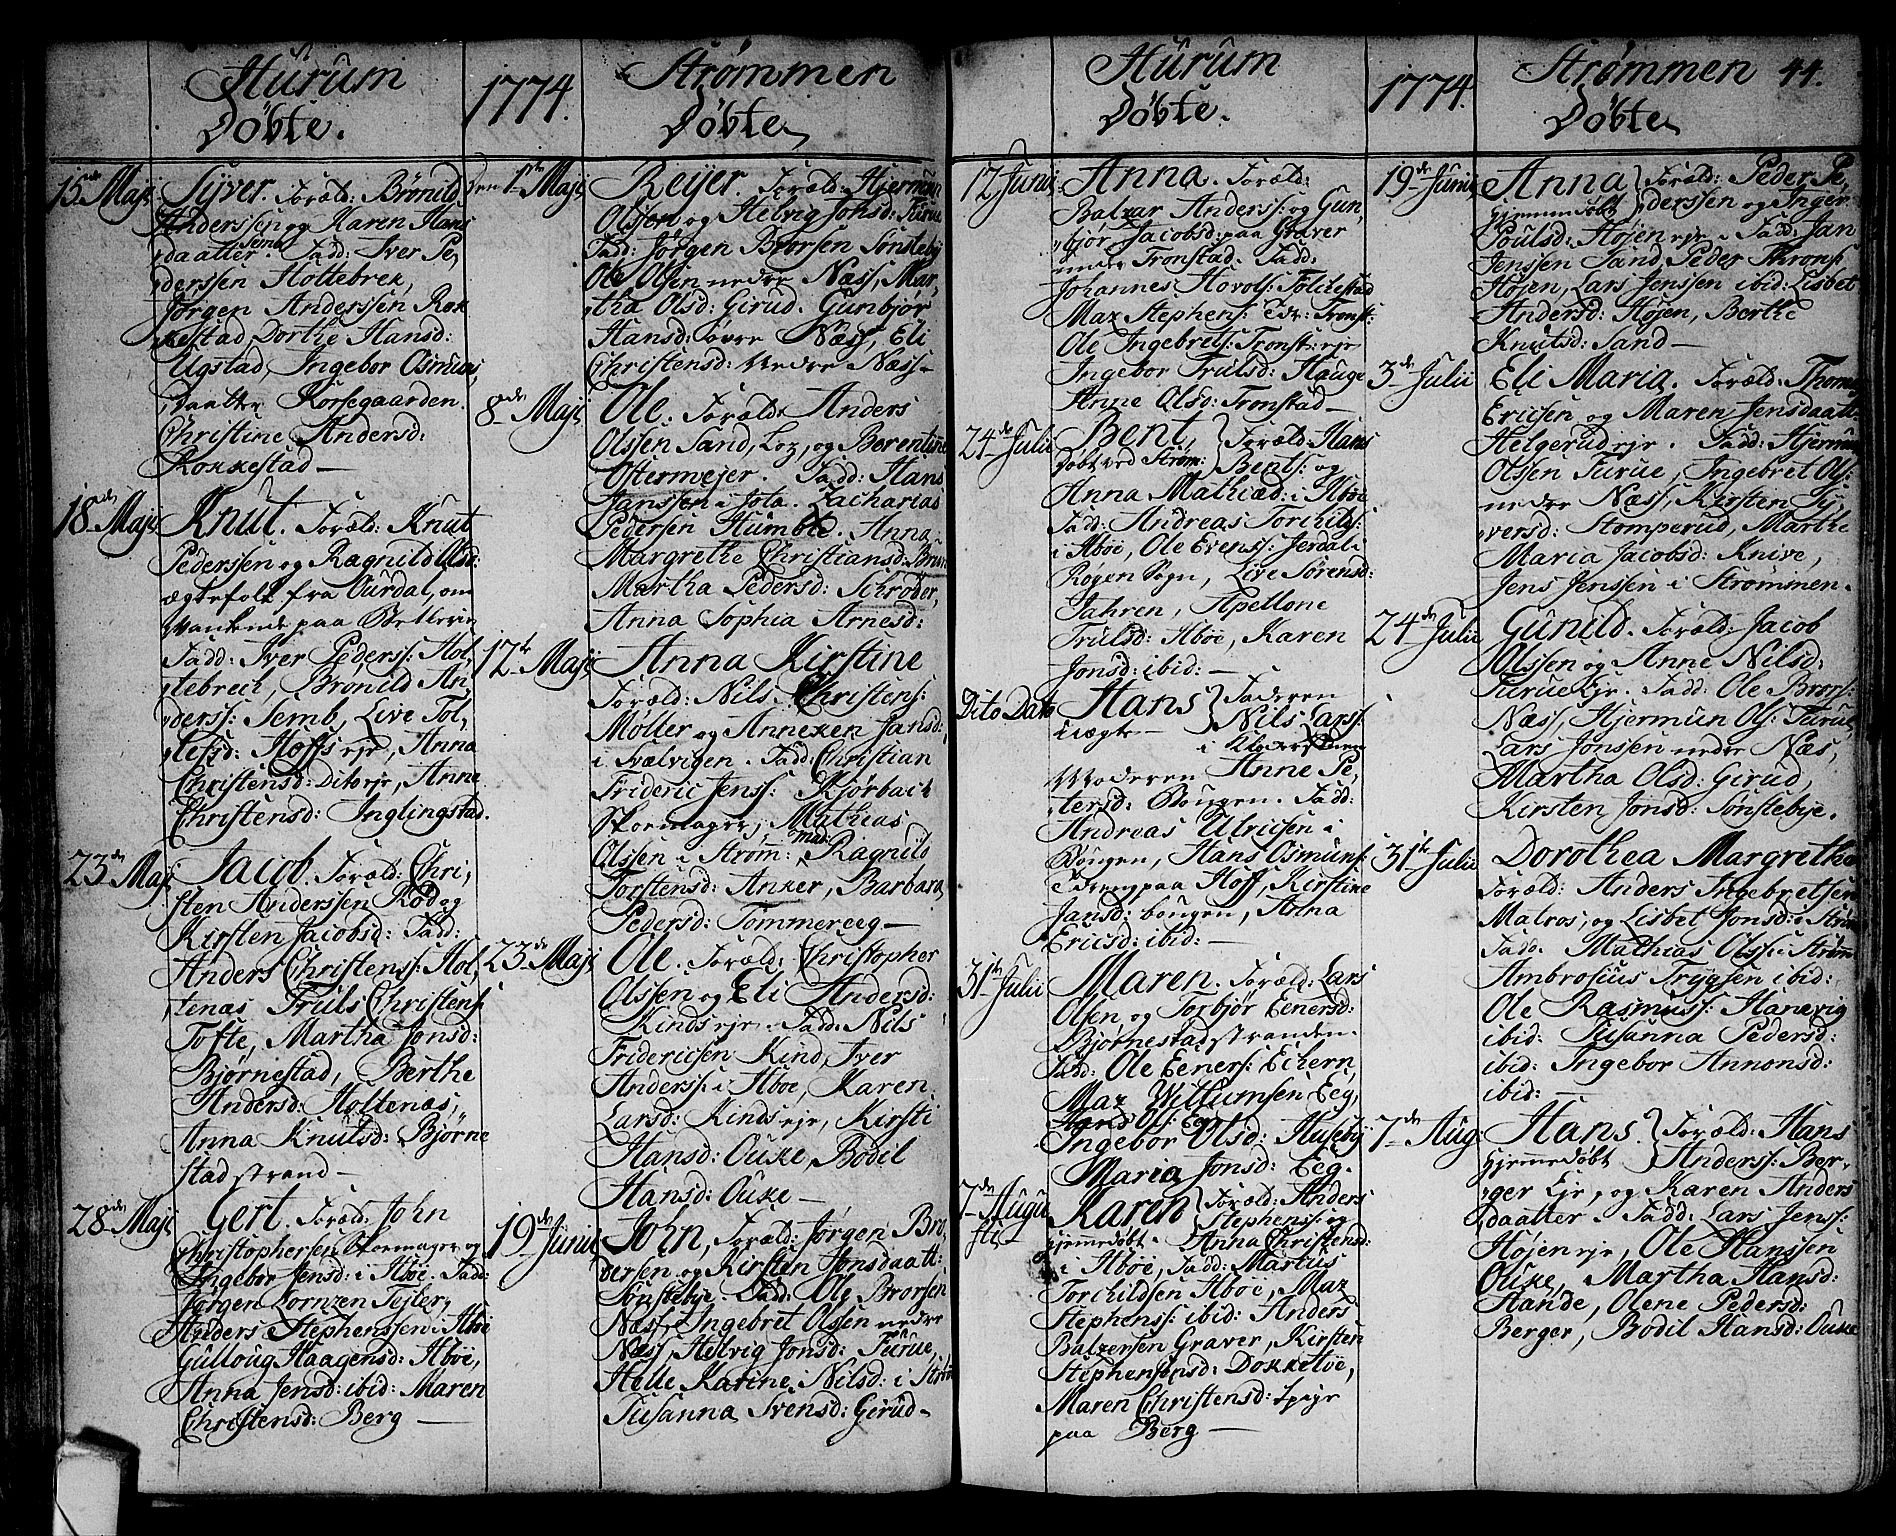 Hurum
Døbte.
15de Maji
Syver. Foræld: Brönild
Anderssen og Karen Hans
daatter Semb. Fadd: Iver Pe,
derssen Holtebrek,
Jørgen Anderssen Rok
kestad, Dorthe Hansd:
Ugstad, Ingebor Osmuns,
daatter Korsegaarden.
Christine Andersd:
Rokkestad —
18de Maji
Knut. Foræld: Knut
Pederssen og Ragnild Olsd:
ægtefolk fra Ourdal, om
vankende paa Betlerie
Fadd: Iver Pederss: Hol,
tebrech, Brønild An,
derss: Semb, Live Tol,
lefsd: Hoffs eje, Anna
Christensd: Dito eje, Anne
Christensd: Inglingstad.
23de Maji
Jacob. Foræld: Chri,
sten Anderssen Rød og
Kirsten Jacobsd: Fadd:
Anders Christens: Hol,
tenæs, Truls Christens:
Tofte, Martha Jonsd:
Bjørnestad, Berthe
Andersd: Holtenæs,
Anna Knutsd: Bjørne
stadstrand —
28de Maji
Gert. Foræld: John
Christophersen Skomager og
Ingebor Jensd: i Aböe. Fadd:
Jørgen Lornzen Fejler,
Anders Stephenssen i Aböe
Gulloug Haagensd: Aböe,
Anna Jensd: ibid: Maren
Christensd: Berg —
1774.
Strømmen
Døbte
den 1ste Maji
Reijer. Foræld: Hjermun
Olssen og Helvig Jonsd: Furue
Fadd: Jørgen Brorsen Sønsteby
Ole Olsen nedre Næss, Mar,
tha Olsd: Girud. Gunbjør
Hansd: øvre Næss, Eli
Christensd: Nedre Næss —
8de Maji
Ole. Foræld: Anders
Olssen Sand, Loz, og Berentine
Ostermejer. Fadd: Hans
Janssen i Jota. Zacharias
Pedersen Humble. Anna
Margrethe Christiansd: Bruun
Martha Pedersd: Schrøder,
Anna Sophia Arnesd:
12te Maji
Anna Kirstine
Foræld: Nils Christens:
Møller og Anneken Jansd:
i Svælvigen. Fadd: Christian
Frideric Jens: Kjørbach
Skomager, Mathias
Olssen i Strøm: Ragnild
Torstensd: Anker, Barbara
Pedersd: Tømmereeg —
23de Maji
Ole. Foræld: Christopher
Olssen og Eli Andersd:
Kinds eje. Fadd: Nils
Fridericsen Kind, Iver
Anderss: i Aböe, Karen
Larsd: Kinds eje, Kirsti
Hansd: Ouke, Bodil
Hansd: Ouke —
19de Junii
John, Foræld: Jørgen Bro,
versen og Kirsten Jonsdaatt:
Sønstebye. Fadd: Ole Brorsen
Næss, Ingebret Olsen nedre
Næss, Helvig Jonsd: Furue,
Helle Karine Nilsd: i Strøm
Susanna Svensd: Girud —
Hurum
Døbte.
12 Junii
Anna. Foræld:
Balzar Anderss: og Gun,
bjør Jacobsd: paa Graver
under Tronstad. Fadd:
Johannes Havols: Follestad
Maz Stephens: Eje: Tronst:
Ole Ingebrets: Tronst: eje
Ingebor Trulsd: Hauge
Anne Olsd: Tronstad —
24de Julii
Bent, Foræld: Hans
Døbt ved Strøm: Bents: og
Anna Mathiæd: i Aböe
Fadd: Andreas Torchils:
i Aböe, Ole Evens: Jerdal i
Røgen Sogn, Live Sørensd:
Jahren, Apellone
Trulsd: Aböe, Karen
Jonsd: ibid: —
Dito Dato
Hans Faderen
uægte — Nils Larss:
Moderen Anne Pe,
tersd: Bougen. Fadd:
Andreas Ulricsen i
Bougen, Hans Osmuns:
i dreng paa Hoff, Kirstine
Jansd: bougen, Anna
Ericsd: ibid: —
31te Julii
Maren. Foræld: Lars
Olsen og Torbjør Eenersd:
Bjørnestadstranden.
Fadd: Ole Eeners: Eichern,
Maz Willumsen Eeg,
Ingebor Olsd: Huseby
Maria Jonsd: Eeg.
7de Augu
sti
Karen Foræld: Anders
hjemmedøbt — Stephens: og
Anna Christensd:
i Aböe, Fadd: Martus
Torchildsen Aböe, Maz
Stephenss: ibid: Anders
Balzersen Graver, Kirsten
Stephensd: Dokketöe,
Maren Christensd: pige
paa Berg —
1774.
Strømmen 44.
Døbte
19de Junii
Anna Foræld: Peder Pe,
hjemmedøbt derssen og Inger
Poulsd: Højen eje. Fadd: Jan
Jenssen Sand, Peder Throns:
Højen, Lars Jenssen ibid: Lisbet
Andersd: Højen, Berthe
Knutsd: Sand —
3de Julii
Eli Maria. Foræld: Thomas
Ericsen og Maren Jensdaatt:
Helgerud eje. Fadd: Hjermun
Olssen Furue, Ingebret Ols:
nedre Næss, Kirsten Sy,
versd: Stomperud, Marthe
Maria Jacobsd: Knive,
Jens Jenssen i Strømmen.
24de Julii
Gunild. Foræld: Jacob
Olssen og Anne Nilsd:
Furue Eje. Fadd: Ole Brors:
Næss, Hjermun Ols: Furue
Lars Jonssen nedre Næs,
Martha Olsd: Girud,
Kirsten Jonsd: Sønstebye.
31te Julii
Dorothea Margrethe
Foræld: Anders Ingebretsen
Matros, og Lisbet Jonsd: i Strøm
Fadd. Mathias Olss: i Strøm
Ambrosius Trygsen ibid:
Ole Rasmuss: Hanevig
ibid: Susanna Pedersd:
ibid: Ingebor Annonsd:
ibid: —
7de Aug:
Hans. Foræld: Hans
hjemmedøbt Anderss: Ber,
ger Eje, og Karen Anders
daatter. Fadd: Lars Jenss:
Højen eje, Ole Hanssen
Ouke, Martha Hansd:
Hande, Olene Pedersd:
Berger, Bodil Hansd: Ouke